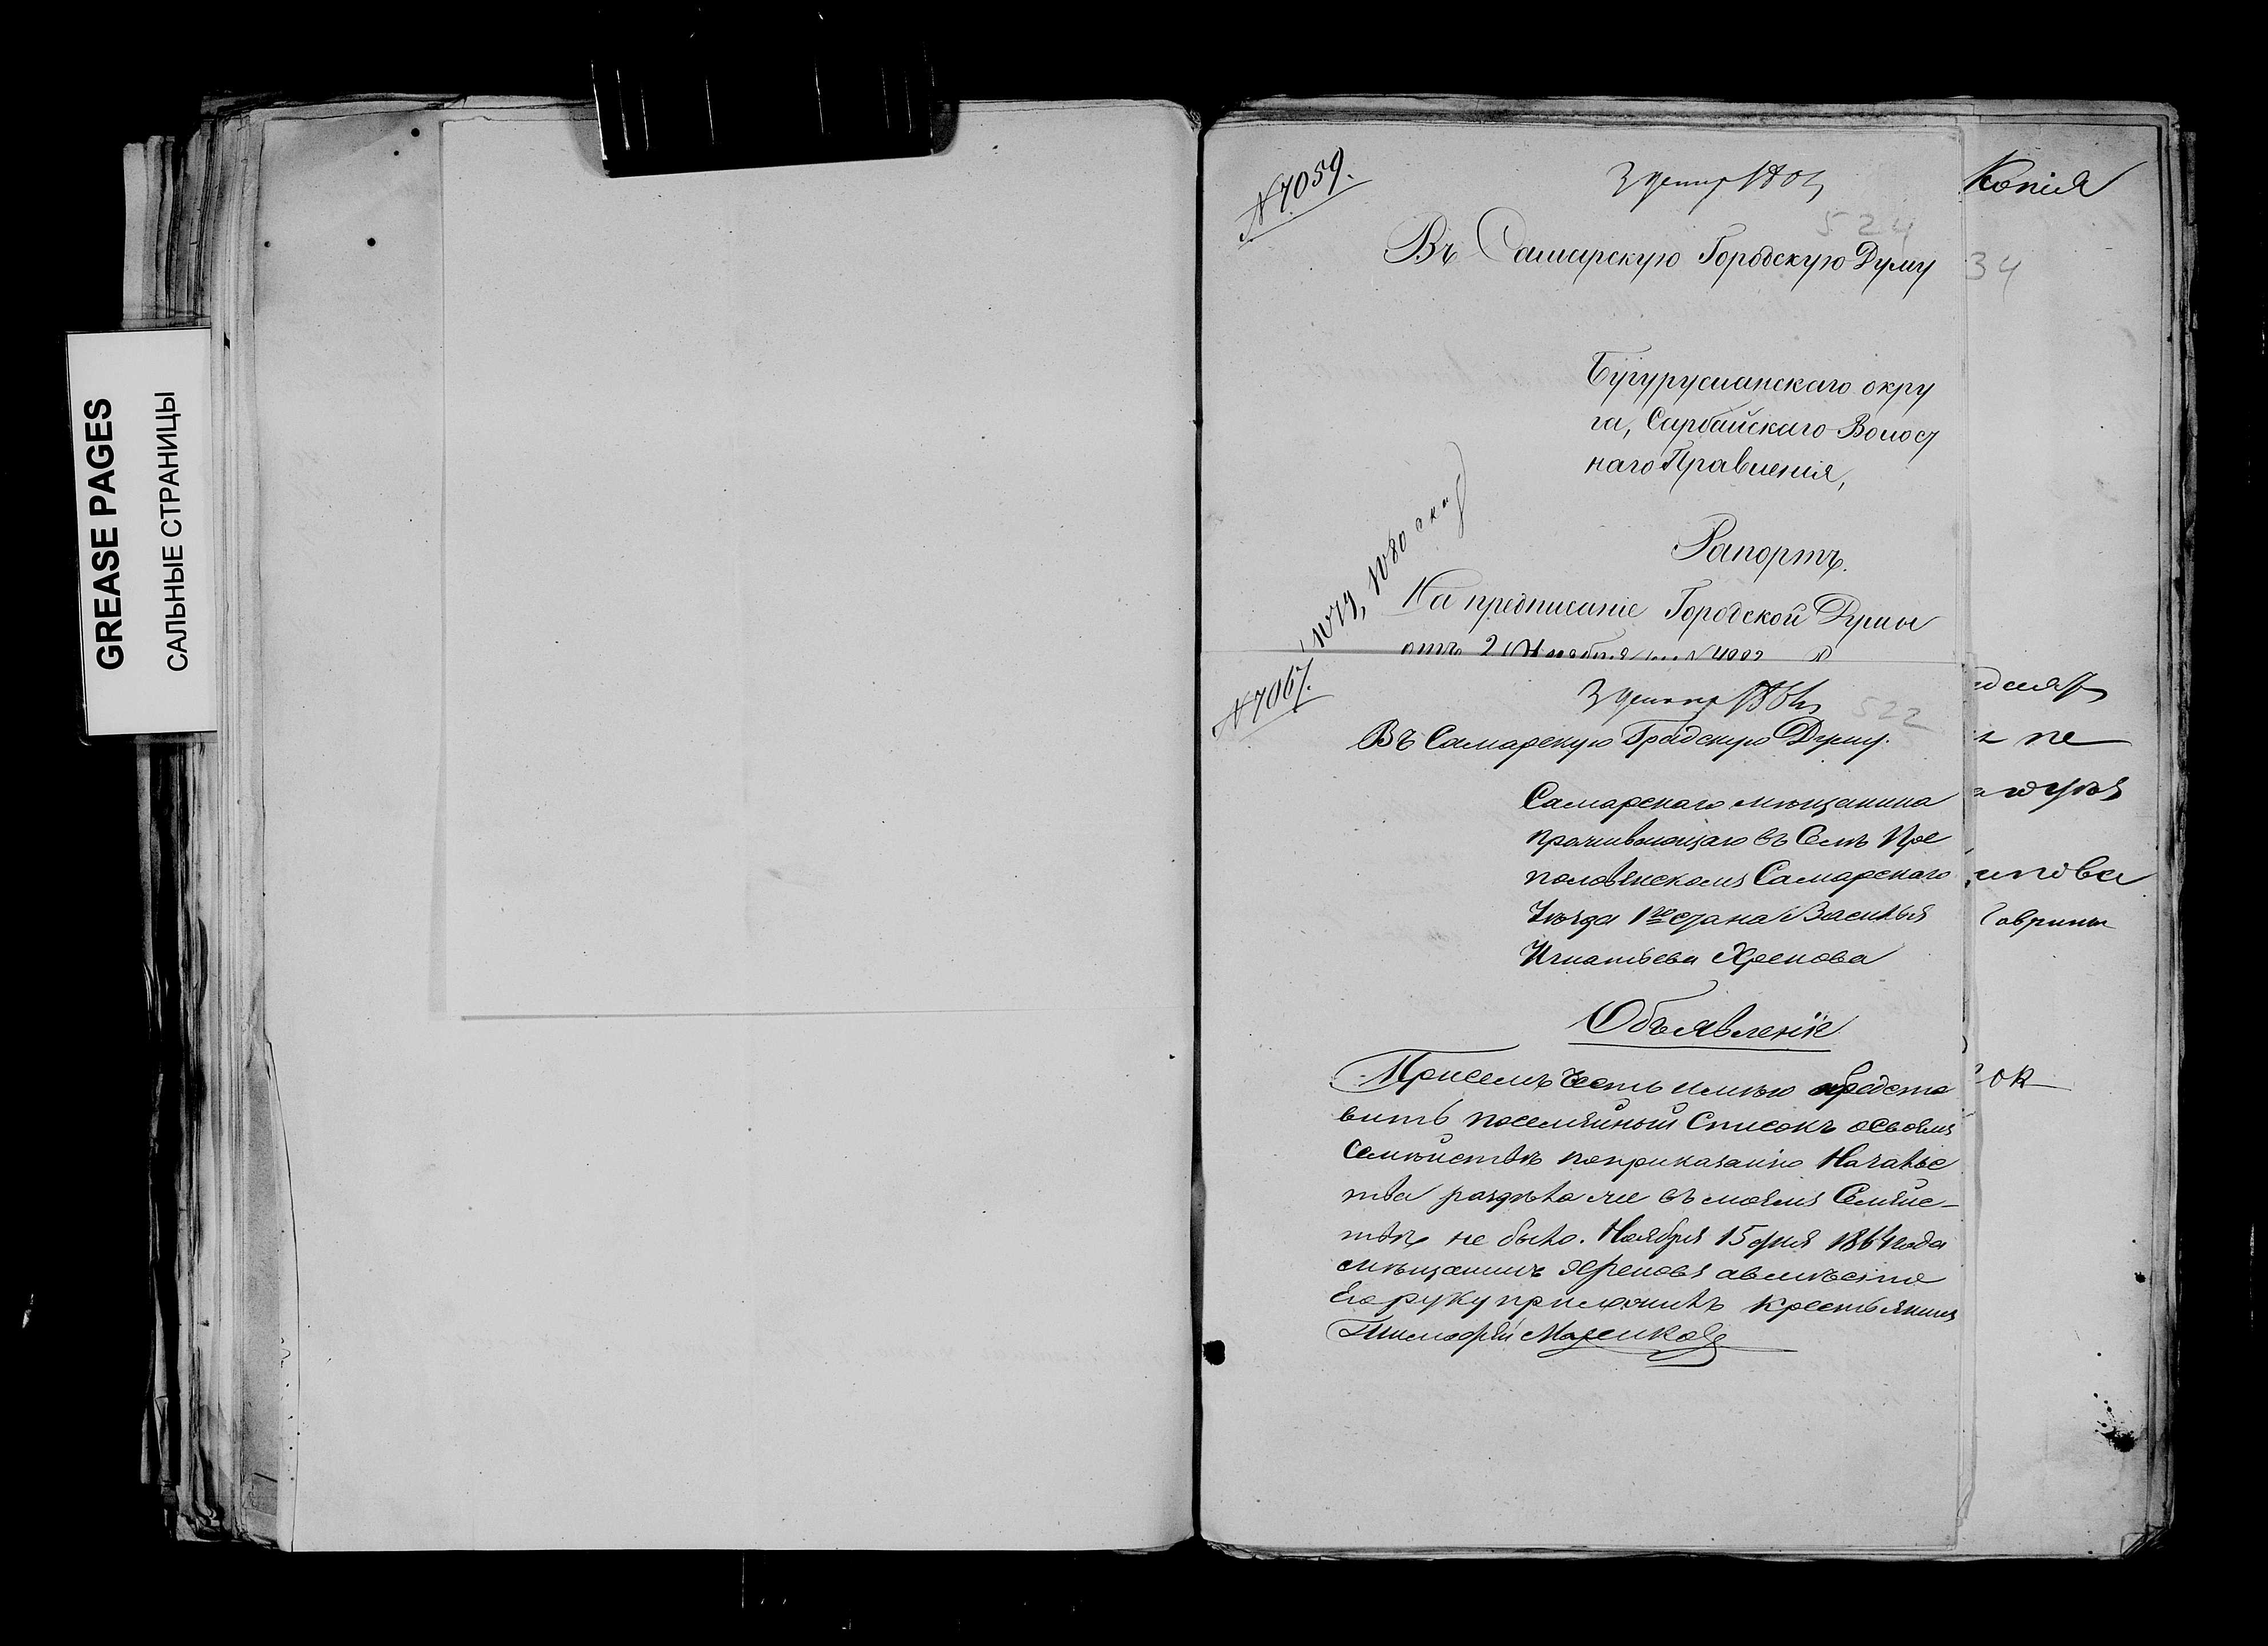 GREASE PAGES
САЛЬНЫЕ СТРАНИЦЫ
N 7059.
524
Въ Самарскую Городскую Думу
Бугурусланскаго окру
га, Сарбайскаго Волос
наго Правленія,
Рапортъ.
На предписаніе Городской Думы
отъ
N 7067.
522
Въ Самарскую Градскую Думу.
Самарскаго мѣщанина
проживающаго въ Селѣ Пре
половѣнскомъ Самарскаго
Уѣзда 1го стана Василья
Игнатьева Хренова
Объявленіе
Присемъ честь имѣю предста
вить посемейный Списокъ освоемъ
Семѣйствѣ поприказанію Началье
тва раздѣла же въ моемъ Семѣйс-
твѣ не было. Ноября 15 дня 1864 года
мѣщанинъ Хреновъ авмѣсто
Его руку приложилъ крестьянинъ
Тимофѣй
Копія
34
не